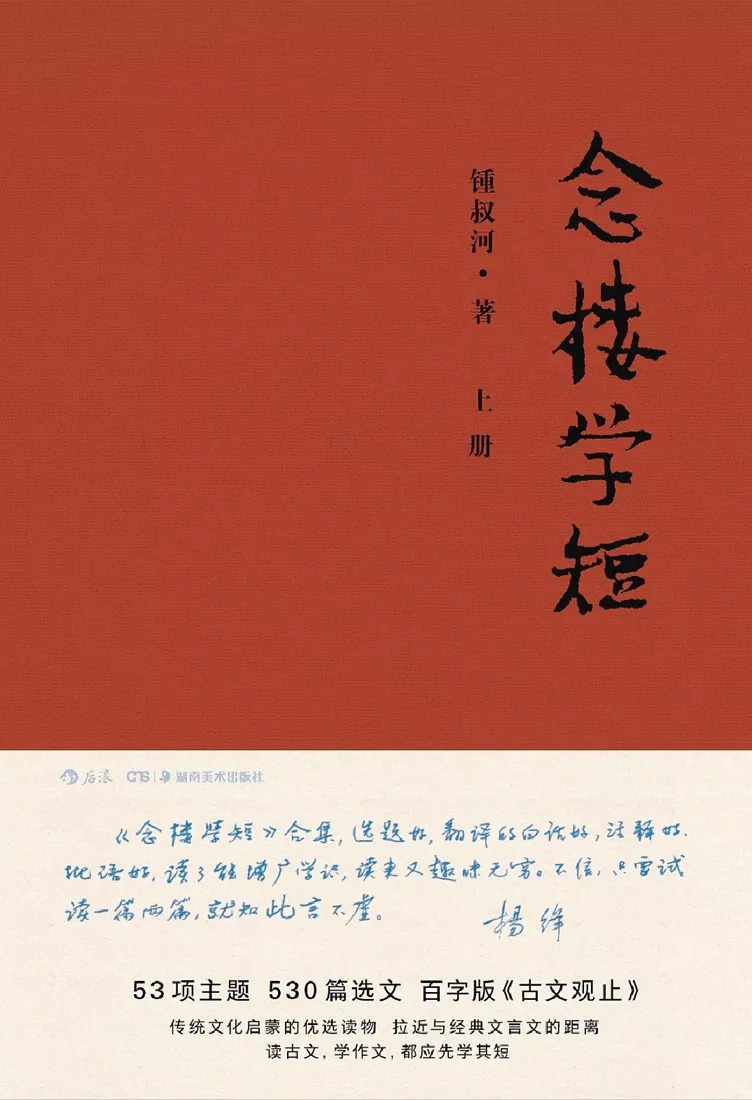 念楼学短
锺叔河·著 上册
后浪 CTS 湖南美术出版社
《念楼学短》合集,选题好,翻译的白话好,注释好,
批语好,读了能增广学识,读来又趣味无穷。不信,只需试
读一篇两篇,就知此言不虚。
杨绛
53项主题 530篇选文 百字版《古文观止》
传统文化启蒙的优选读物 拉近与经典文言文的距离
读古文,学作文,都应先学其短